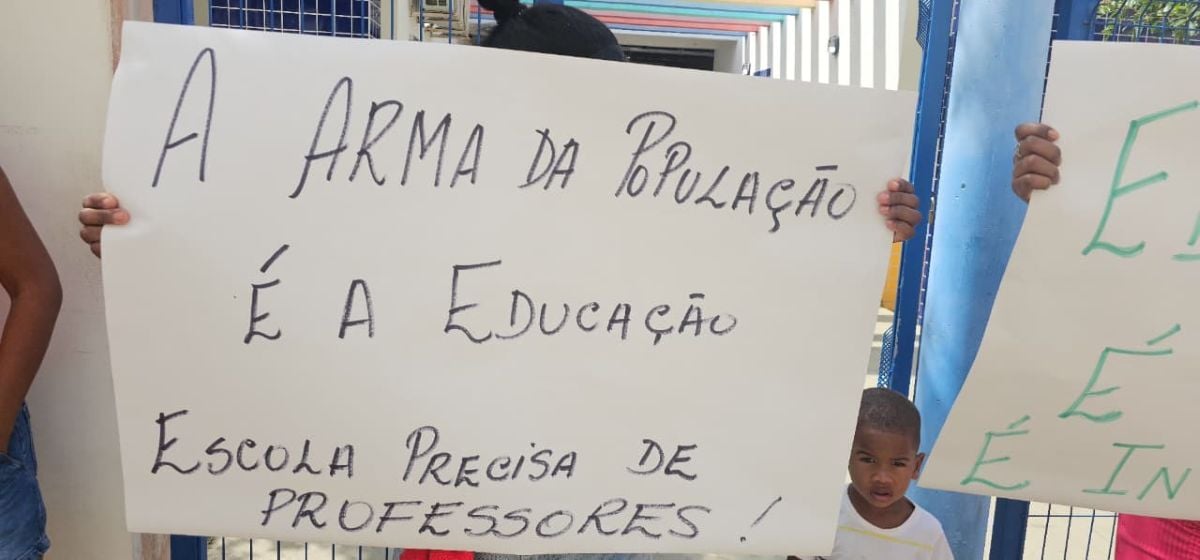 A ARMA DA POPULAÇÃO
É A EDUCAÇÃO
ESCOLA PRECISA DE
PROFESSORES!
É
É